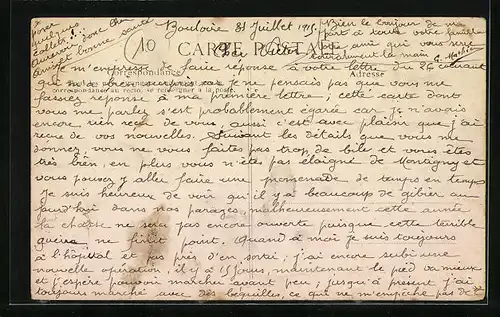 poser
quelques
collets!
Au revoir donc cher
ami et bonne santé
Bouloire 31 Juillet 1915
Bien le bonjour de ma
part à toute votre famille
ami qui vous serre
cordialement la main G.
10
CARTE POSTALE
Cher Victor
Correspondance
Adresse
Je m'empresse de faire réponse à votre lettre du 26 courant
qui m'a car je ne pensais pas que vous me
correspondance au recto, se renseigner à la poste
fassiez réponse à ma première lettre; cette carte dont
vous me parlez s'est probablement égarée car je n'avais
encore rien reçu de vous, aussi c'est avec plaisir que j'ai
reçue de vos nouvelles. Suivant les détails que vous me
donnez, vous ne vous faites pas trop de bile et vous êtes
très bien, en plus vous n'êtes pas eloigné de Montigny et
vous pouvez y aller faire une promenade de temps en temps
Je suis heureux de voir qu'il y a beaucoup de gibier au
jourd'hui dans nos parages, malheureusement cette année
la chasse ne sera pas encore ouverte puisque cette terrible
guerre ne finit point. Quand à moi je suis toujours
à l'hôpital et pas près d'en sortir; j'ai encore subi une
nouvelle opération, il y a 15 jours, maintenant le pied va mieux
et j'espère pouvoir marcher avant peu; jusqu'à présent j'ai
toujours marché avec des béquilles, ce qui ne m'empêche pas de